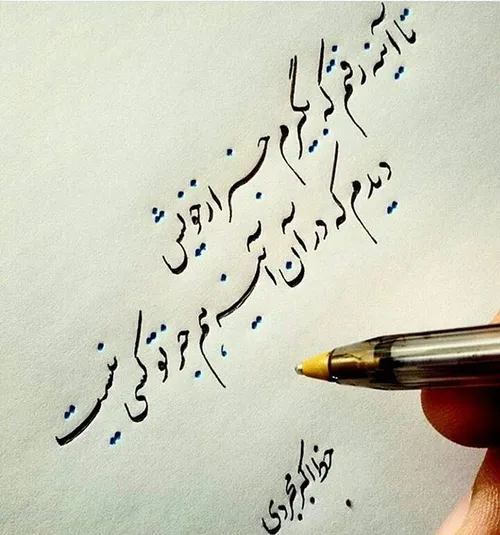 تا آینه رفتم که بگیرم خبر از خویش
دیدم که در آن آینه هم جز تو کسی نیست